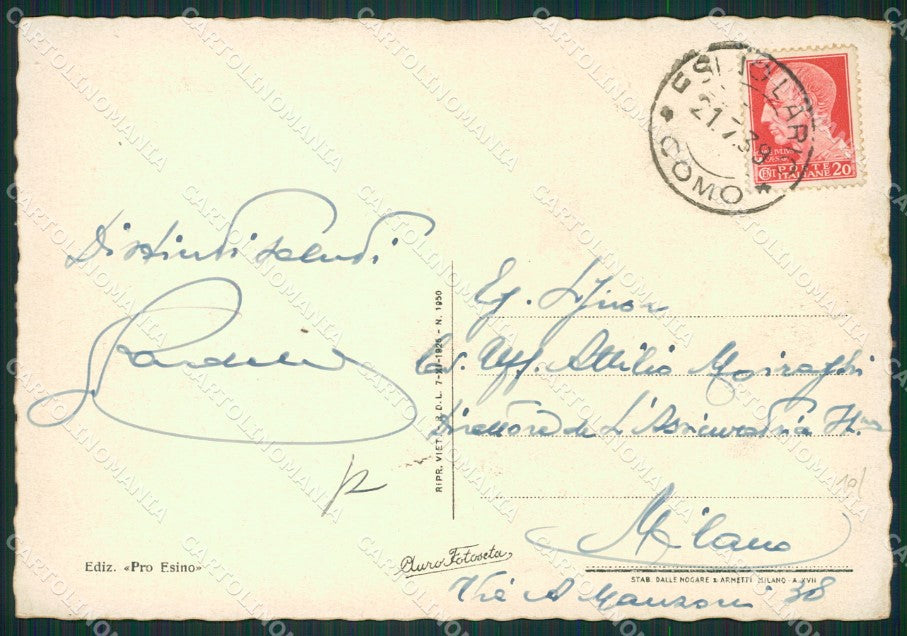 ESINO LARIO
21.7.39
* COMO *
POSTE
ITALIANE 20
Distinti saluti
Eg. Signor
Cav. Uff. Attilio Moiraghi
Direttore de L'Assicuratrice It.na
Milano
Via A. Manzoni 38
RIPR. VIET. R. D. L. 7-XI-1925 - N. 1950
Ediz. «Pro Esino»
Auro Fotoseta
STAB. DALLE NOGARE & ARMETTI MILANO - A. XVII
10/
CARTOLINOMANIA